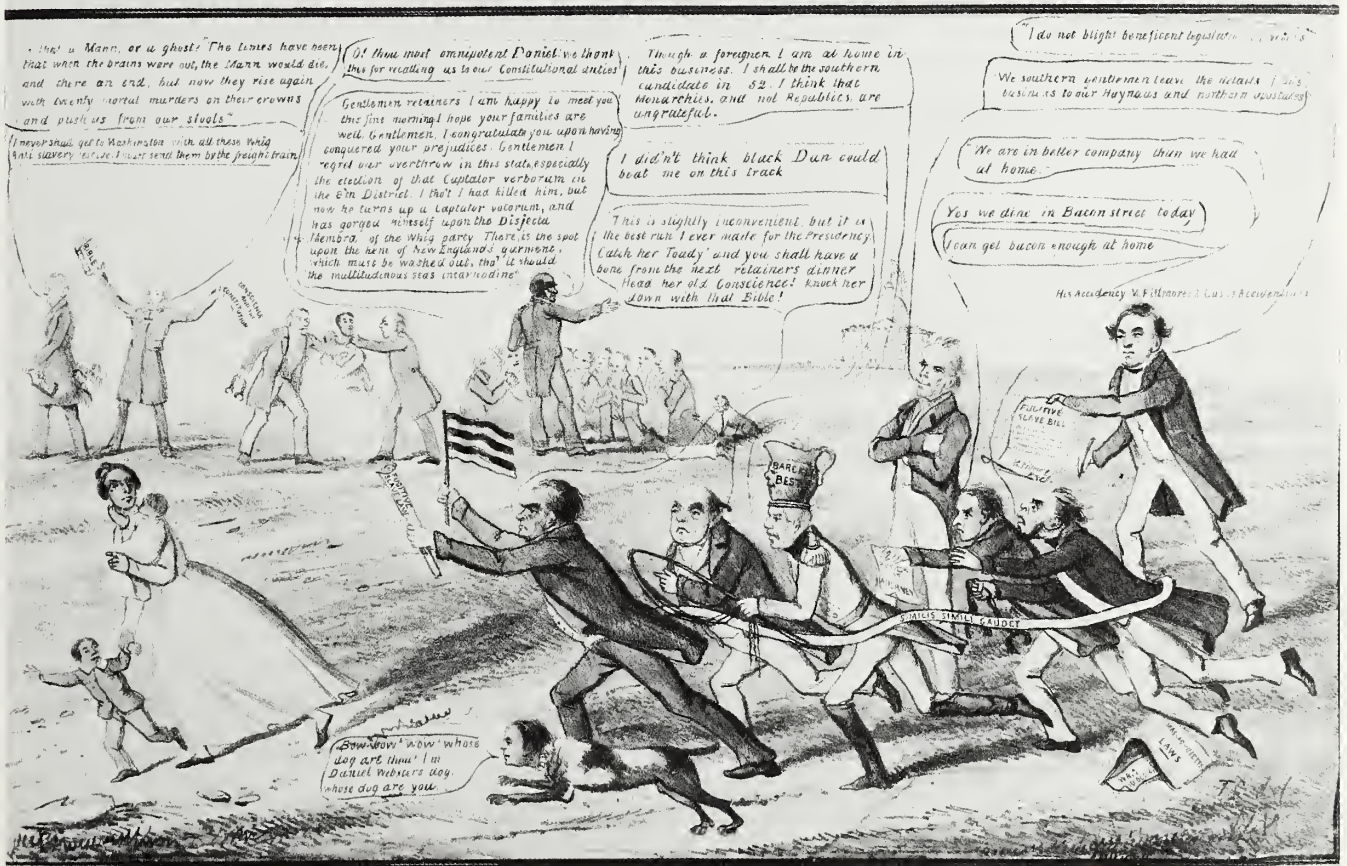 a Mann, or a ghost? "The times have been
that when the brains were out, the Mann would die,
and there an end, but now they rise again
with twenty mortal murders on their crowns
and push us from our stools"
I never shall get to Washington with all these Whig
Anti slavery I must send them by the freight train
O! thou most omnipotent Daniel we thank
thee for recalling us to our Constitutional duties
Gentlemen retainers I am happy to meet you
this fine morning I hope your families are
well. Gentlemen, I congratulate you upon having
conquered your prejudices. Gentlemen I
regret our overthrow in this state, especially
the election of that Captator verborum in
the 8'th District. I tho't I had killed him, but
now he turns up a Captator votorum, and
has gorged himself upon the Disjecta
Membra, of the Whig party There, is the spot
upon the hem of New England's garment,
which must be washed out, tho' it should
the multitudinous seas incarnadine"
Though a foreigner I am at home in
this business. I shall be the southern
candidate in 52. I think that
Monarchies, and not Republics, are
ungrateful.
I did'n't think black Dan could
beat me on this track
This is slightly inconvenient, but it is
the best run I ever made for the Presidency
Catch her Toady! and you shall have a
bone from the next retainers dinner
Head her old Conscience! knock her
down with that Bible!
"I do not blight beneficent
We southern gentlemen leave the details
business to our Haynaus and northern apostates
"We are in better company than we had
at home.
Yes we dine in Bacon street today
I can get bacon enough at home
His Accidency M. Fillmore
CONSCIENCE
AND THE
CONSTITUTION
FUGITIVE
SLAVE BILL
BARE
BEST
SIMILIS SIMILI GAUDET
Bow wow wow whose
dog art thou? I'm
Daniel Websters dog.
whose dog are you.
LAWS